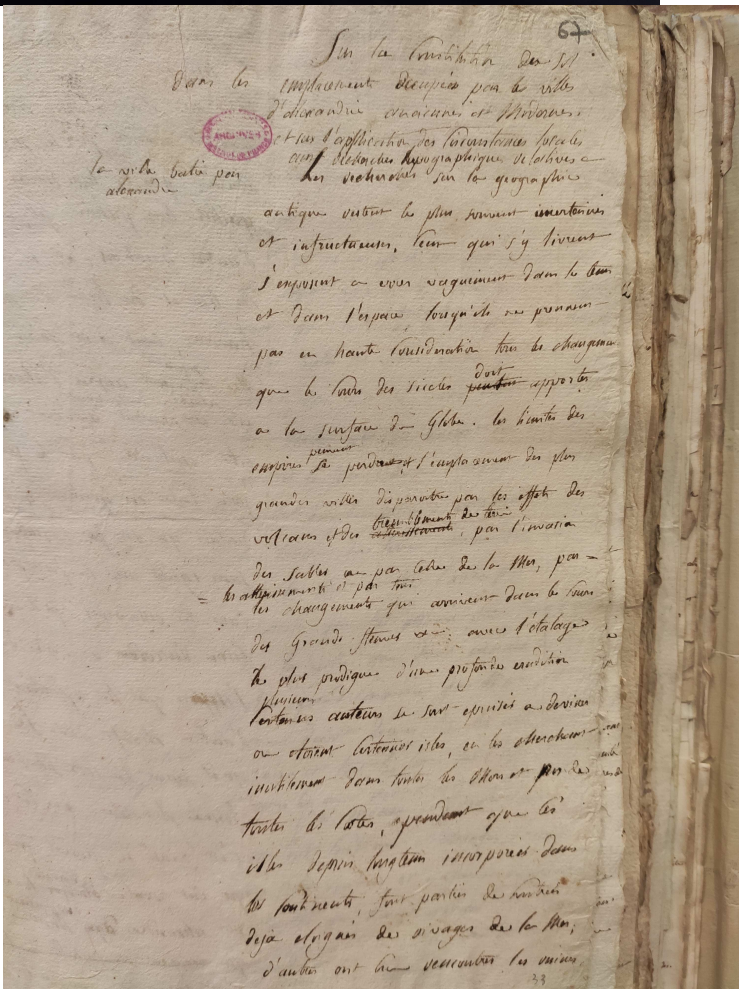 67
Sur la Constitution des Sol
dans les emplacements occupés par les villes
d'alexandrie anciennes et Modernes.
et sur l'application des Circonstances locales
aux recherches topographiques relatives a
la ville batie par
alexandre
les recherches sur la geographie
antique restent le plus souvent incertaines
et infructueuses, Ceux qui s'y livrent
s'exposent a errer vaguement dans le tems
et dans l'espace lorsqu'ils ne prennent
pas en haute Consideration tous les changemens
que le Cours des siecles doit apporter
a la surface du Globe. les limites des
empires se perdent et l'emplacement des plus
grandes villes disparoitre par les effets des
volcans et des tremblements de terre, par l'invasion
des Sables ou par Celle de la Mer, par =
= les atterissements et par tous
les changements qui arrivent dans le Cours
des Grands fleuves avec l'étalage
le plus prodigue d'une profonde erudition
plusieurs
Certains auteurs se sont epuisés a deviner
ou etoient Certaines isles, en les cherchant
inutilement dans toutes les Mers et près de
toutes les Cotes, cependant que les
isles depuis longtems incorporées dans
les Continents, font parties de
deja eloignés des rivages de la Mer,
d'autres ont bien rencontrés les ruines
33